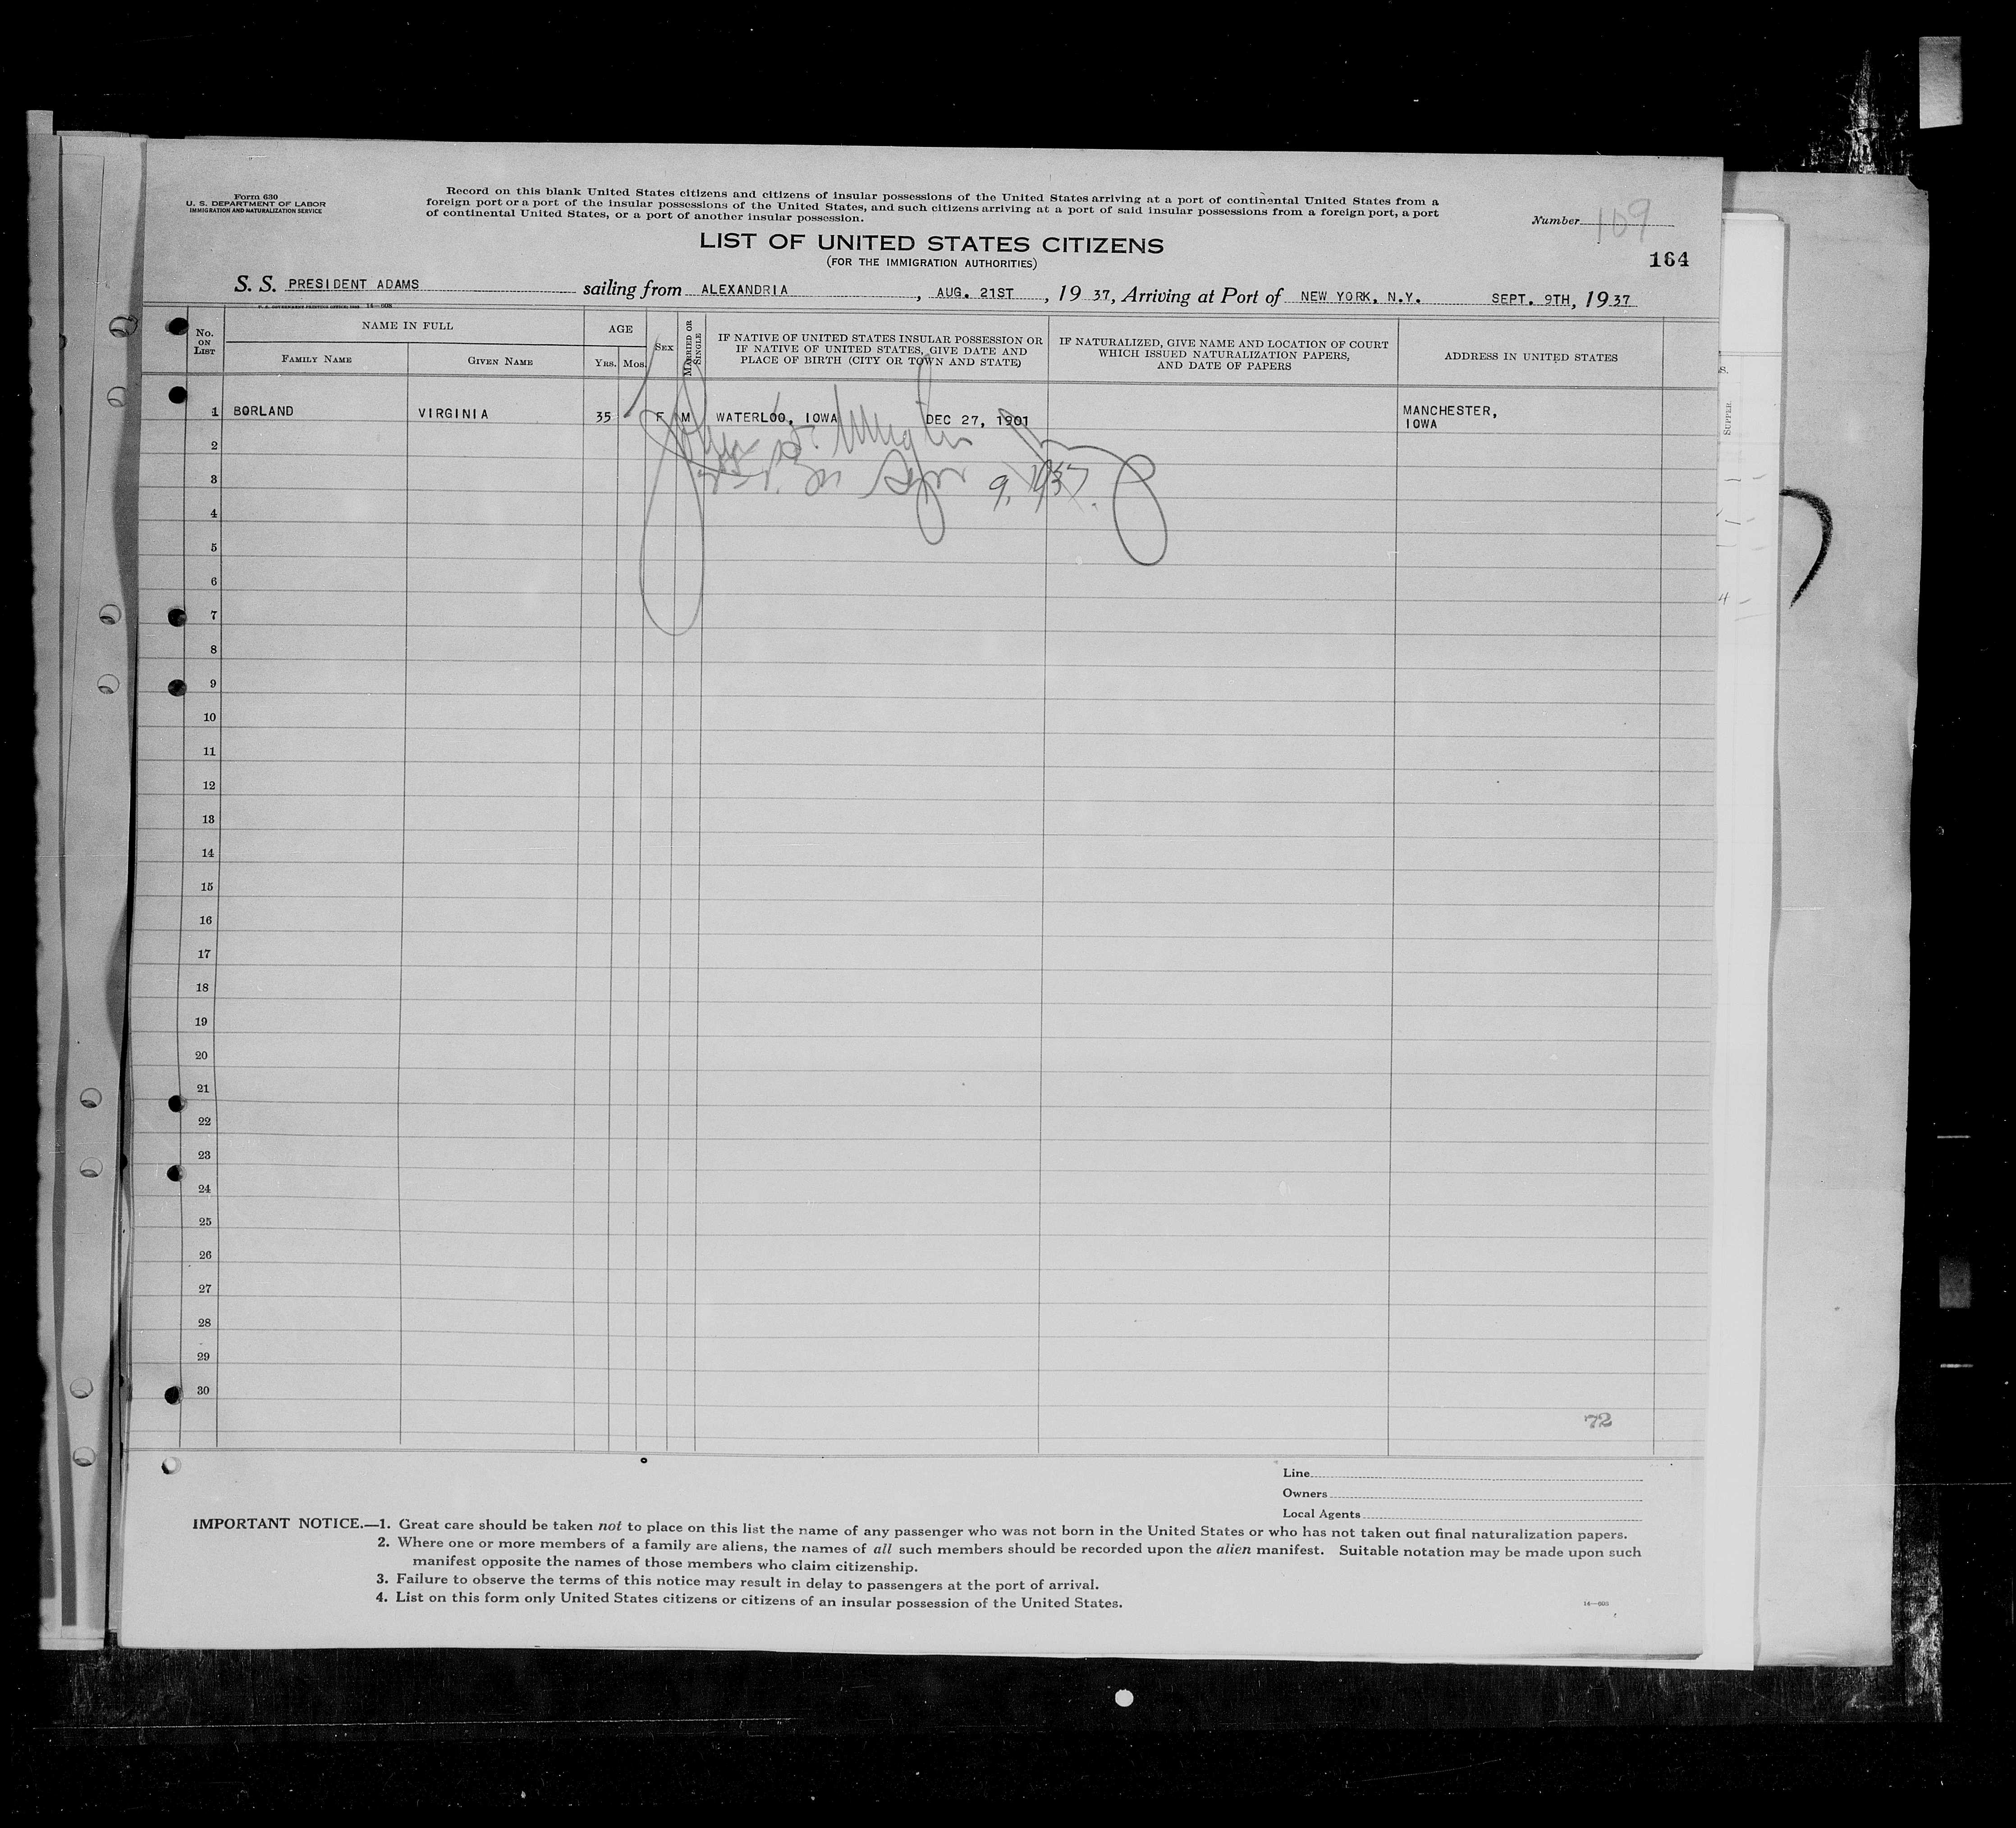 Form 630
U. S. DEPARTMENT OF LABOR
IMMIGRATION AND NATURALIZATION SERVICE
Record on this blank United States citizens and citizens of insular possessions of the United States arriving at a port of continental United States from a
foreign port or a port of the insular possessions of the United States, and such citizens arriving at a port of said insular possessions from a foreign port, a port
of continental United States, or a port of another insular possession.
Number 109
LIST OF UNITED STATES CITIZENS
(FOR THE IMMIGRATION AUTHORITIES)
164
S. S. PRESIDENT ADAMS sailing from ALEXANDRIA, AUG. 21ST, 19 37, Arriving at Port of NEW YORK, N.Y. SEPT. 9TH, 19 37
No. ON LIST
NAME IN FULL
FAMILY NAME
GIVEN NAME
AGE
YRS. MOS.
SEX
MARRIED OR SINGLE
IF NATIVE OF UNITED STATES INSULAR POSSESSION OR
IF NATIVE OF UNITED STATES, GIVE DATE AND
PLACE OF BIRTH (CITY OR TOWN AND STATE)
IF NATURALIZED, GIVE NAME AND LOCATION OF COURT
WHICH ISSUED NATURALIZATION PAPERS,
AND DATE OF PAPERS
ADDRESS IN UNITED STATES
1 BORLAND VIRGINIA 35 F M WATERLOO, IOWA DEC 27, 1901 MANCHESTER,
IOWA
2
3
9, 1937.
4
5
6
7
8
9
10
11
12
13
14
15
16
17
18
19
20
21
22
23
24
25
26
27
28
29
30
72
Line
Owners
Local Agents
IMPORTANT NOTICE.—1. Great care should be taken not to place on this list the name of any passenger who was not born in the United States or who has not taken out final naturalization papers.
2. Where one or more members of a family are aliens, the names of all such members should be recorded upon the alien manifest. Suitable notation may be made upon such
manifest opposite the names of those members who claim citizenship.
3. Failure to observe the terms of this notice may result in delay to passengers at the port of arrival.
4. List on this form only United States citizens or citizens of an insular possession of the United States.
14—603
SUPPER